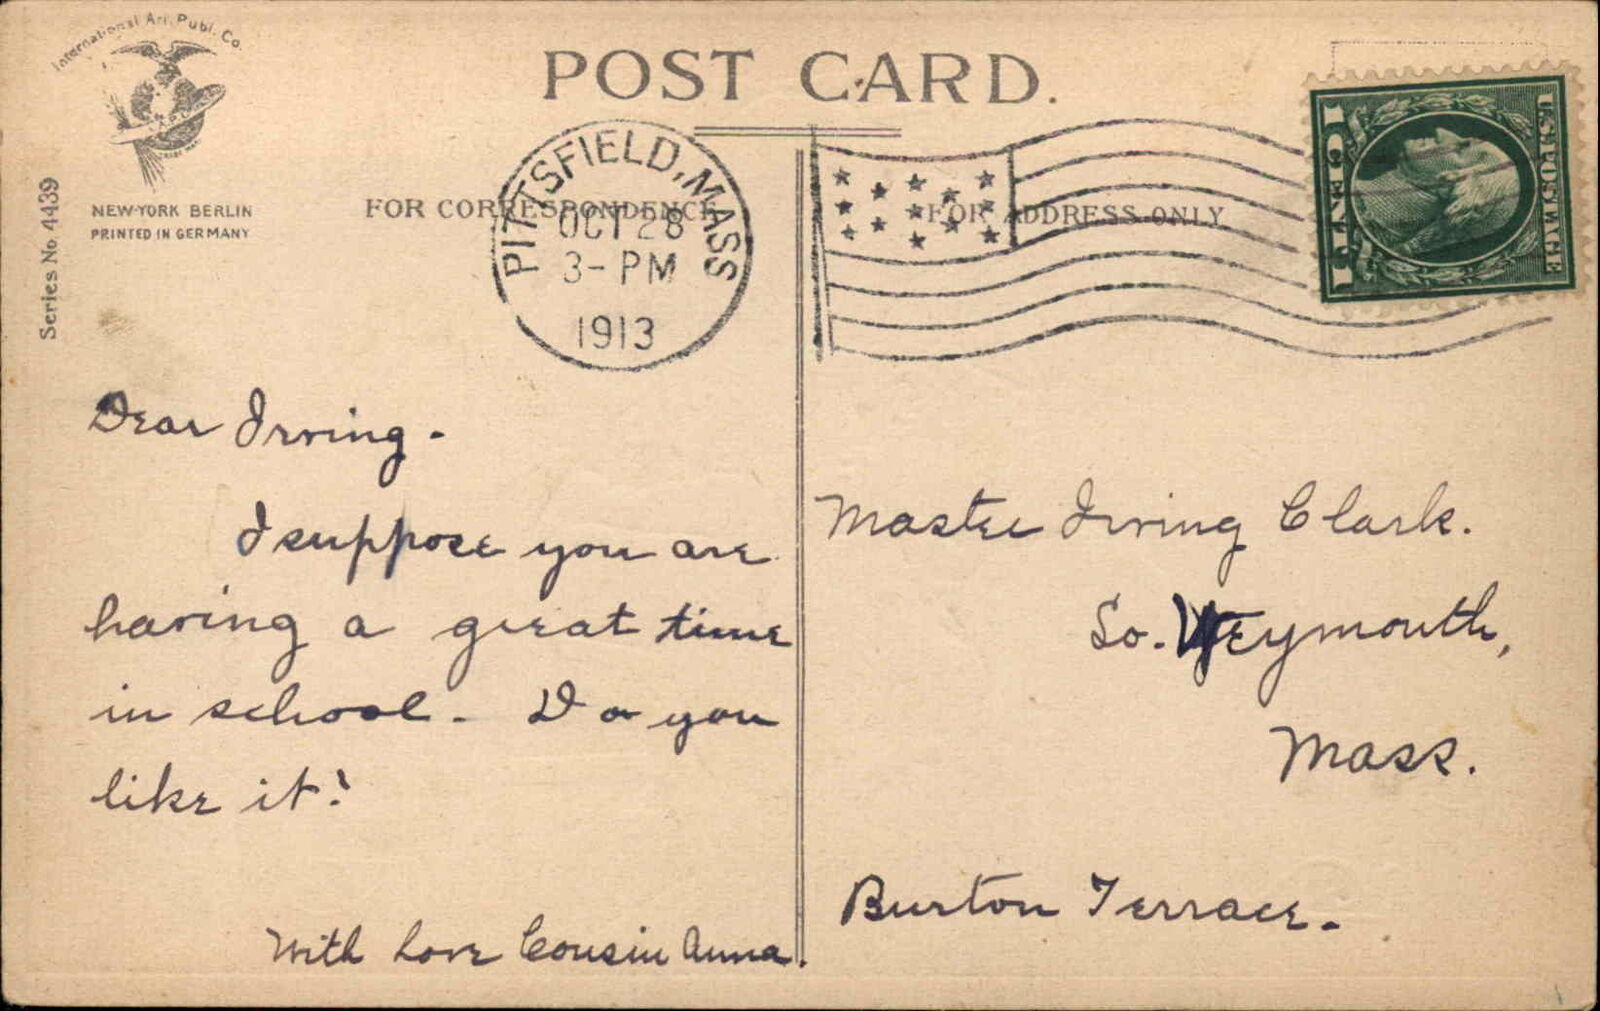 International Art Publ. Co.
POST CARD.
NEW-YORK BERLIN
PRINTED IN GERMANY
Series No 4439
FOR CORRESPONDENCE
FOR ADDRESS ONLY
PITTSFIELD, MASS
OCT 28
3- PM
1913
1 CENT 1
U.S. POSTAGE
Dear Irving -
I suppose you are
having a great time
in school. Do you
like it?
With love Cousin Anna.
Master Irving Clark.
So. Weymouth,
Mass.
Burton Terrace.